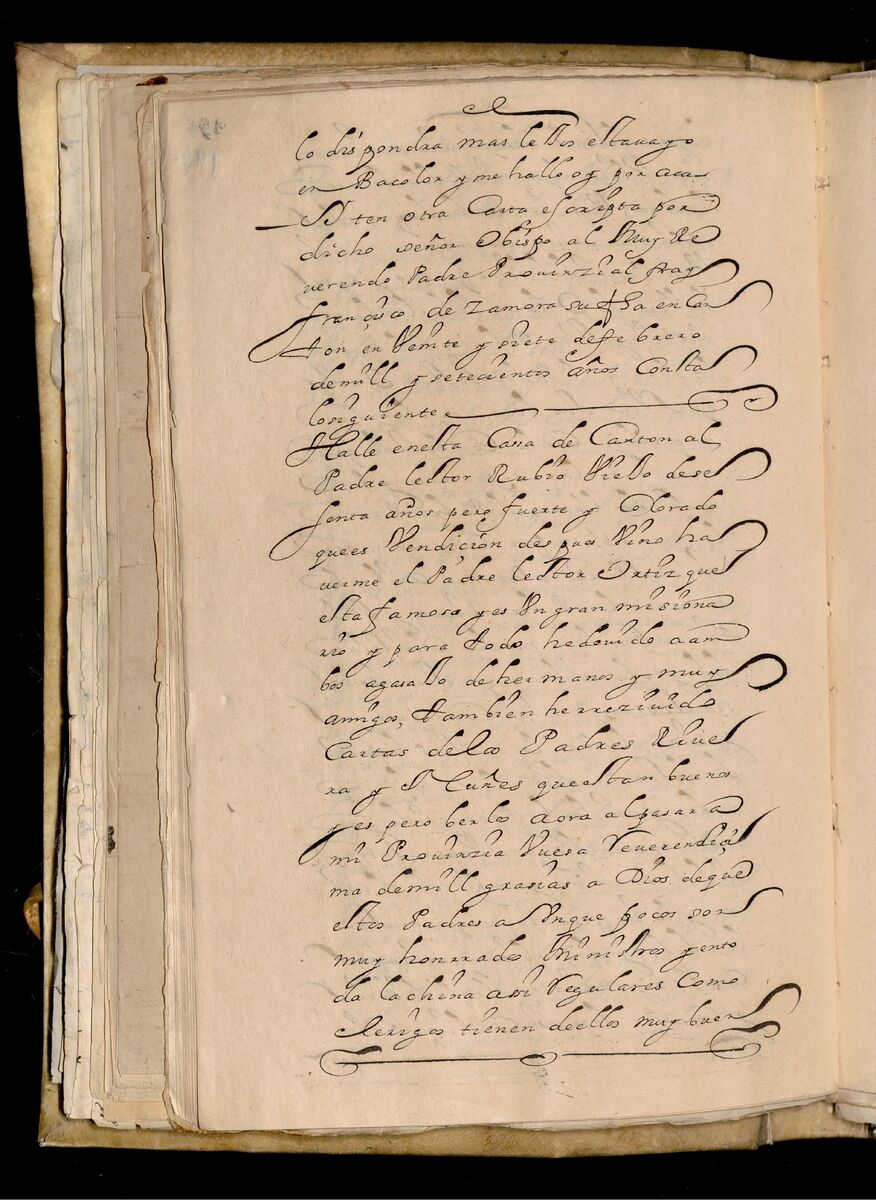 lo dispondra mas le Dos estauayo
en Bacolor y me hallo oy por aca
Yten otra Carta escripta por
dicho señor Obispo al Muy Re
verendo Padre Provinzial fray
françisco de Zamora su fha en Can
ton en Veinte y siete de febrero
de mill y setecientos años Consta
lo siguiente
Halle en esta Casa de Canton al
Padre lector Rubio Viexo de se
senta años pero fuerte y Colorado
que es Vendición despues Vino ha
uerme el Padre lector Ortiz que
esta famoso y es Un gran misiona
rio y para todo he devido a am
bos agasaxo de hermanos y muy
amigos, tambien he rrezivido
Cartas de los Padres Rive
ra y Nuñes que estan buenos
y es pero berlos aora al pasar a
mi Provinzia Vuesa Reverendiçi
ma de mill grasias a Dios de que
estos Padres a Vnque pocos son
muy honrrados Ministros y en to
da la china assi Regulares Como
Clerigos tienen de ellos muy buen